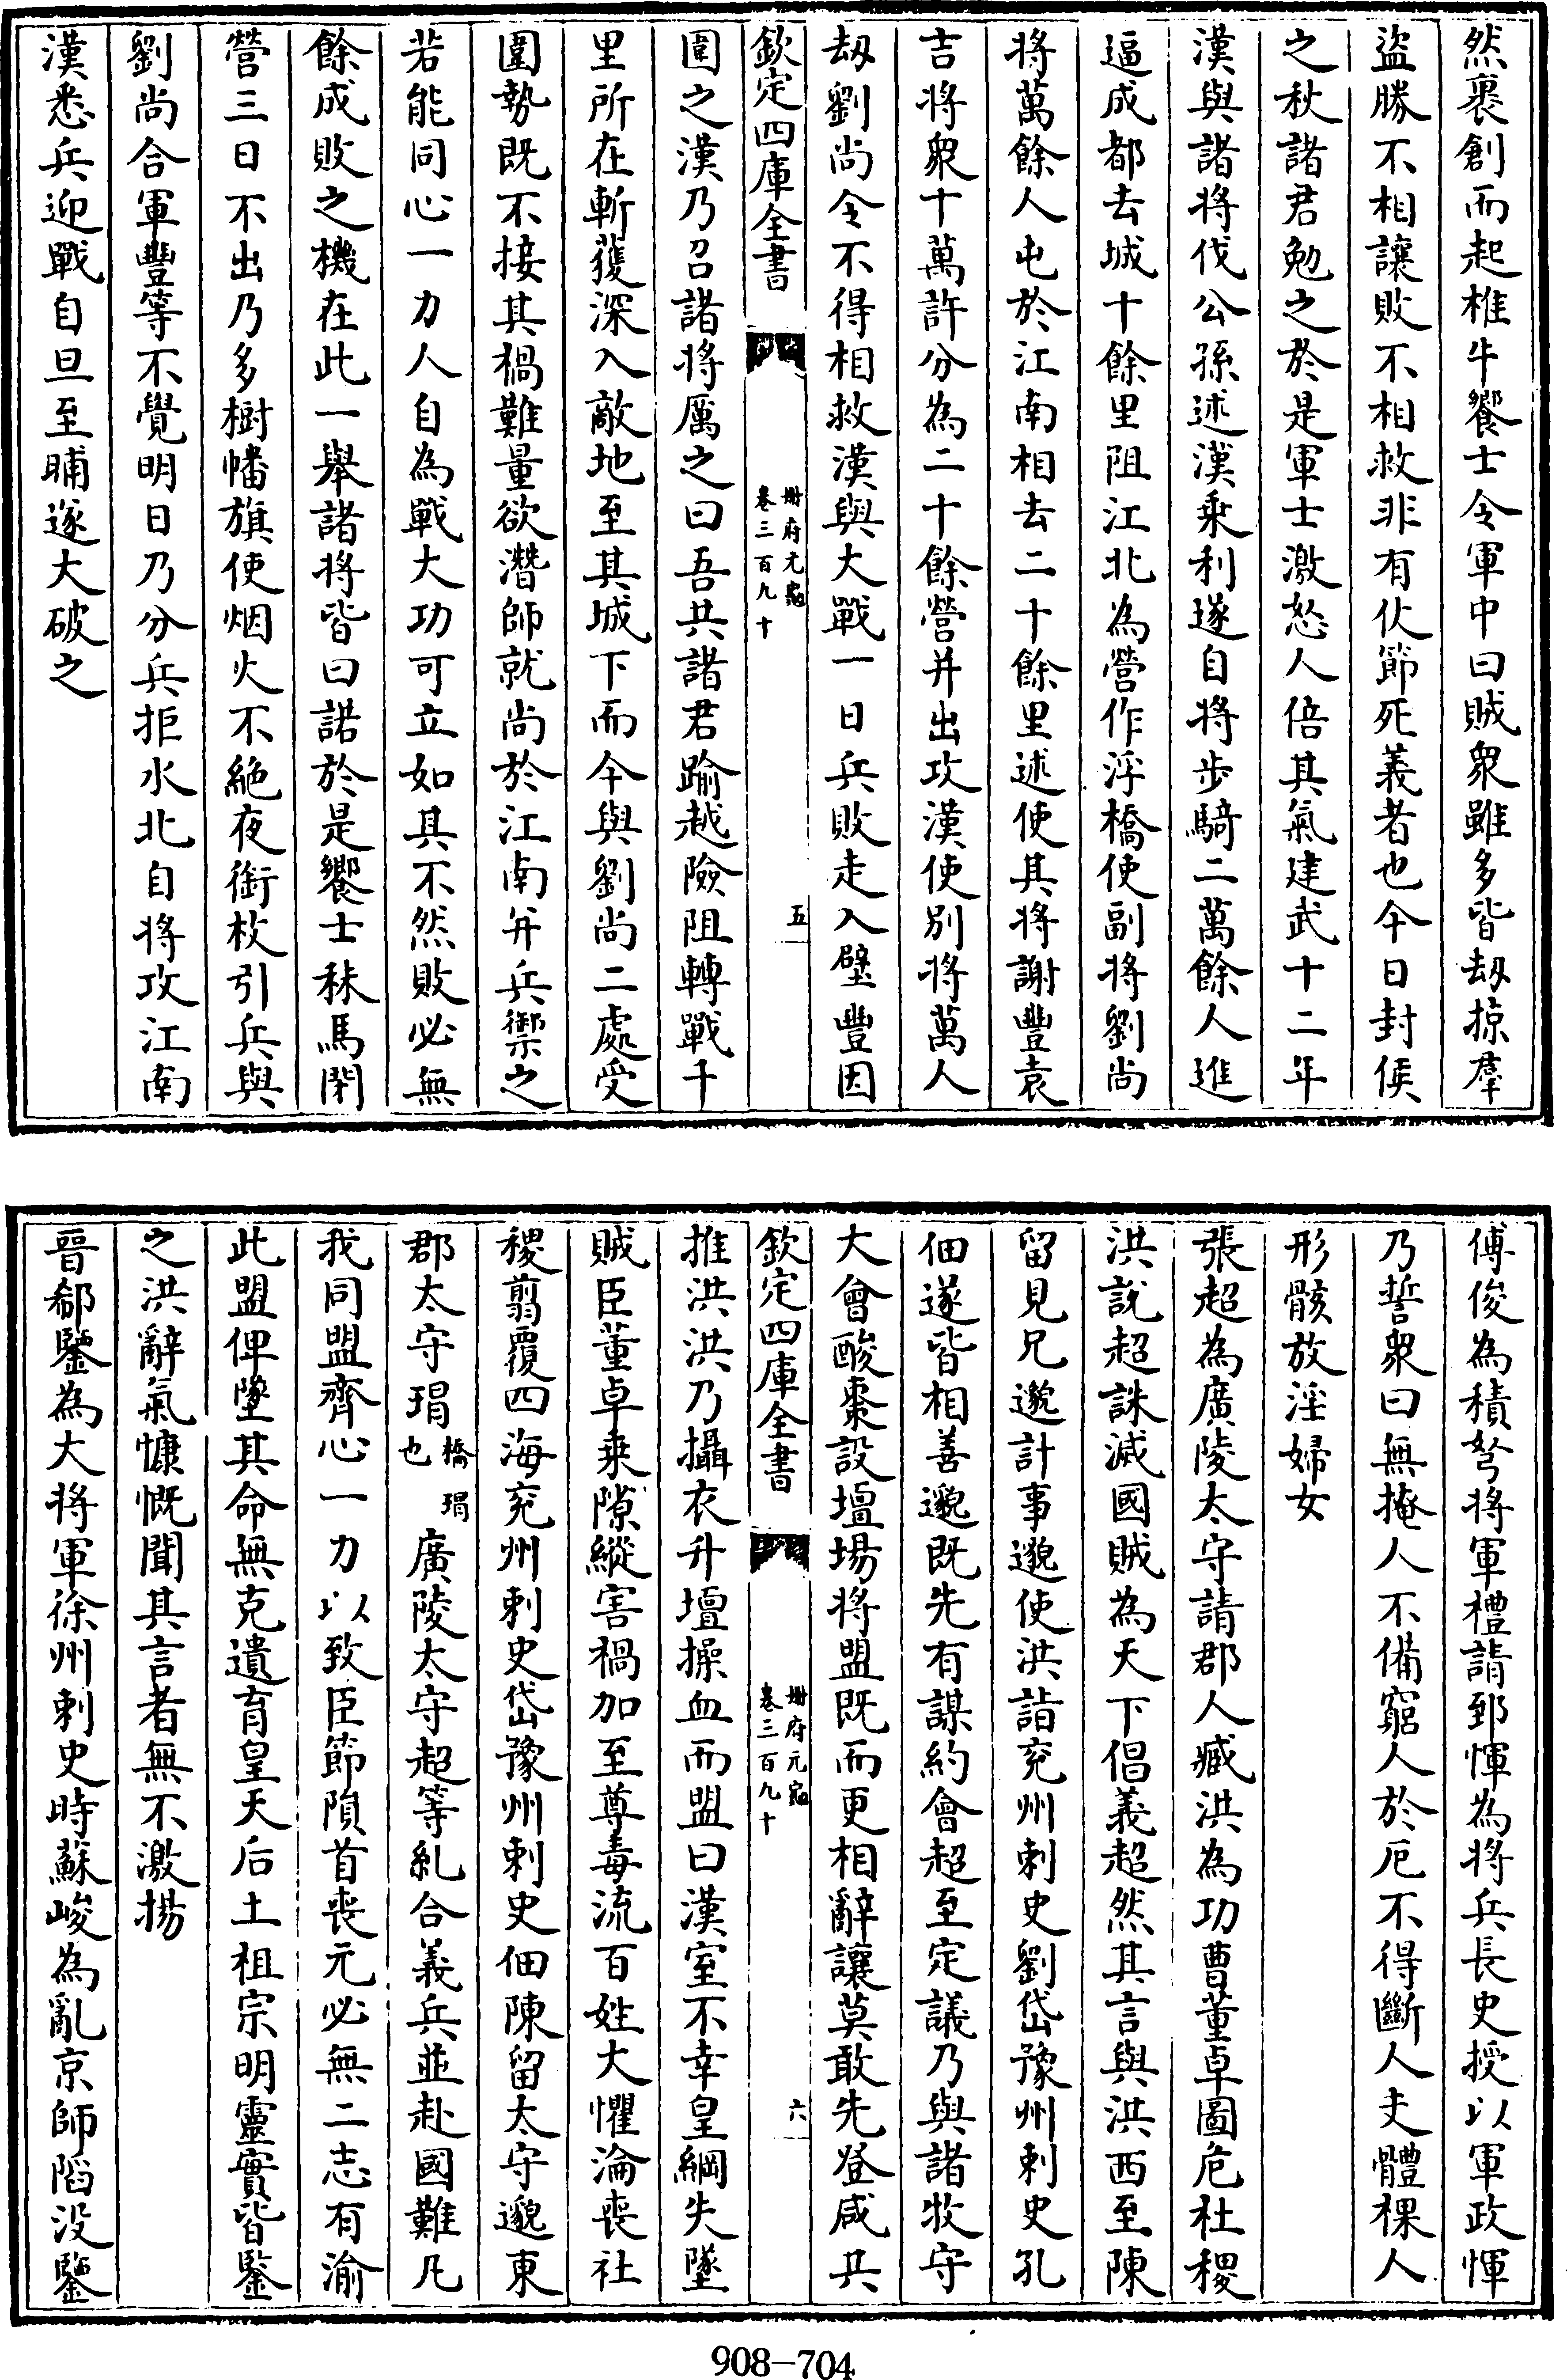 然裹創而起椎牛饗士令軍中曰賊衆雖多皆刼掠羣
盜勝不相讓敗不相救非有仗節死義者也今日封侯
之秋諸君勉之於是軍士激怒人倍其氣建武十二年
漢與諸將伐公孫述漢乗利遂自將步騎二萬餘人進
逼成都去城十餘里阻江北為營作浮橋使副將劉尚
將萬餘人屯於江南相去二十餘里述使其將謝豐袁
吉將衆十萬許分為二十餘營并出攻漢使別將萬人
刼劉尚令不得相救漢與大戰一日兵敗走入壁豐因
欽定四庫全書 冊府元龜卷三百九十 五
圍之漢乃召諸將厲之曰吾共諸君踰越險阻轉戰千
里所在斬獲深入敵地至其城下而今與劉尚二處受
圍勢既不接其禍難量欲潛師就尚於江南并兵禦之
若能同心一力人自為戰大功可立如其不然敗必無
餘成敗之機在此一舉諸將皆曰諾於是饗士秣馬閉
營三日不出乃多樹幡旗使烟火不絶夜銜枚引兵與
劉尚合軍豐等不覺明日乃分兵拒水北自將攻江南
漢悉兵迎戰自旦至晡遂大破之
傅俊為積弩將軍禮請郅惲為將兵長史授以軍政惲
乃誓衆曰無掩人不備窮人於厄不得斷人支體裸人
形骸放淫婦女
張超為廣陵太守請郡人臧洪為功曹董卓圖危社稷
洪說超誅滅國賊為天下倡義超然其言與洪西至陳
留見兄邈計事邈使洪詣兖州刺史劉岱豫州刺史孔
伷遂皆相善邈既先有謀約會超至定議乃與諸牧守
大會酸棗設壇場將盟既而更相辭讓莫敢先登咸共
欽定四庫全書 冊府元龜卷三百九十 六
推洪洪乃攝衣升壇操血而盟曰漢室不幸皇綱失墜
賊臣董卓乗隙縱害禍加至尊毒流百姓大懼淪喪社
稷翦覆四海兖州刺史岱豫州刺史伷陳留太守邈東
郡太守瑁橋瑁也廣陵太守超等糺合義兵並赴國難凡
我同盟齊心一力以致臣節隕首喪元必無二志有渝
此盟俾墜其命無克遺育皇天后土祖宗明靈實皆鑒
之洪辭氣慷慨聞其言者無不激揚
晉郗鑒為大將軍徐州刺史時蘇峻為亂京師陷沒鑒
908-704